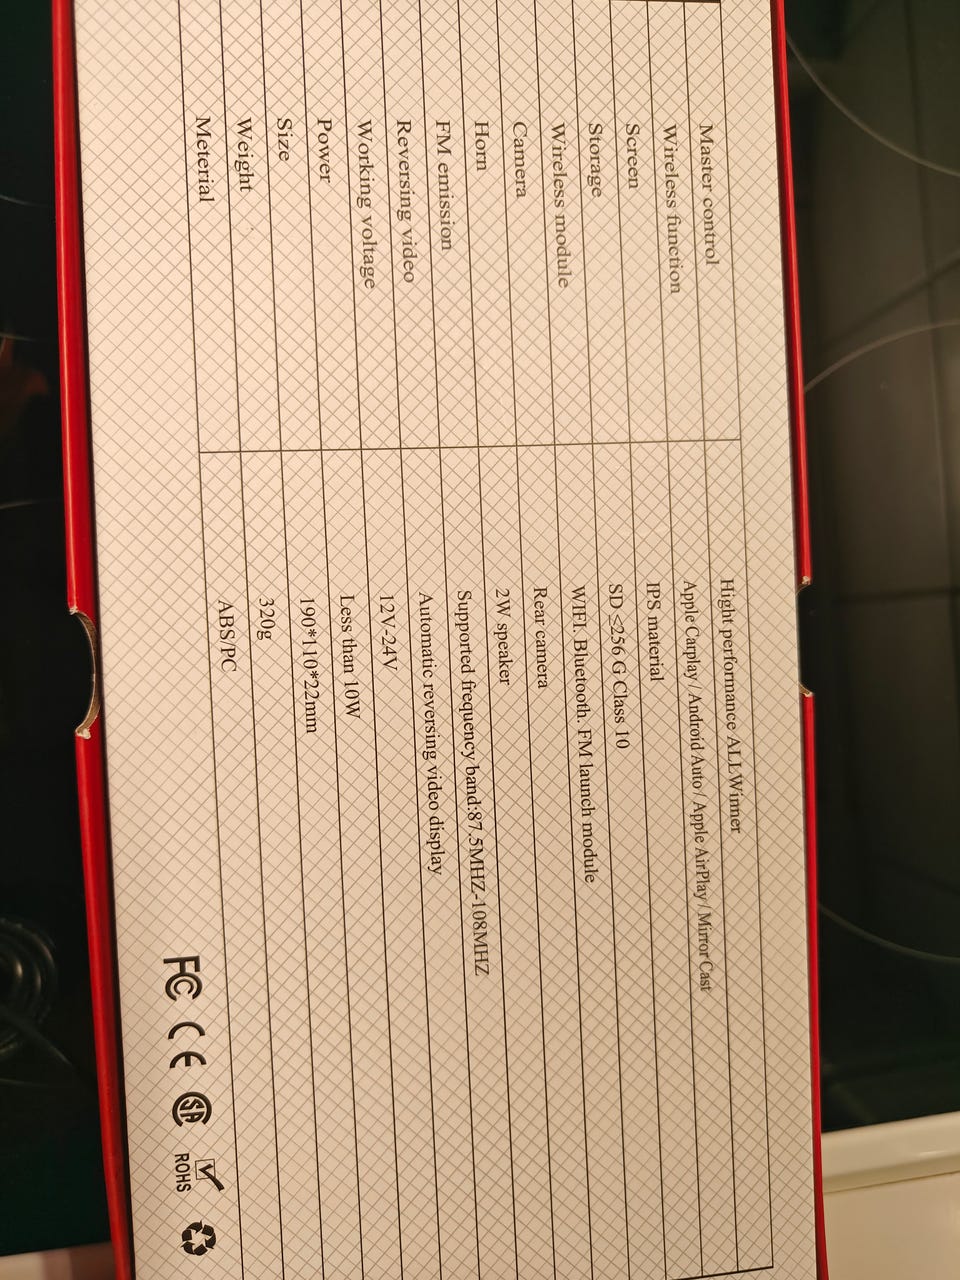 Master control Hight performance ALLWinner
Wireless function Apple Carplay / Android Auto / Apple AirPlay / Mirror Cast
Screen IPS material
Storage SD ≤256 G Class 10
Wireless module WIFI. Bluetooth. FM launch module
Camera Rear camera
Horn 2W speaker
FM emission Supported frequency band:87.5MHZ-108MHZ
Reversing video Automatic reversing video display
Working voltage 12V-24V
Power Less than 10W
Size 190*110*22mm
Weight 320g
Meterial ABS/PC
FC CE SA ROHS